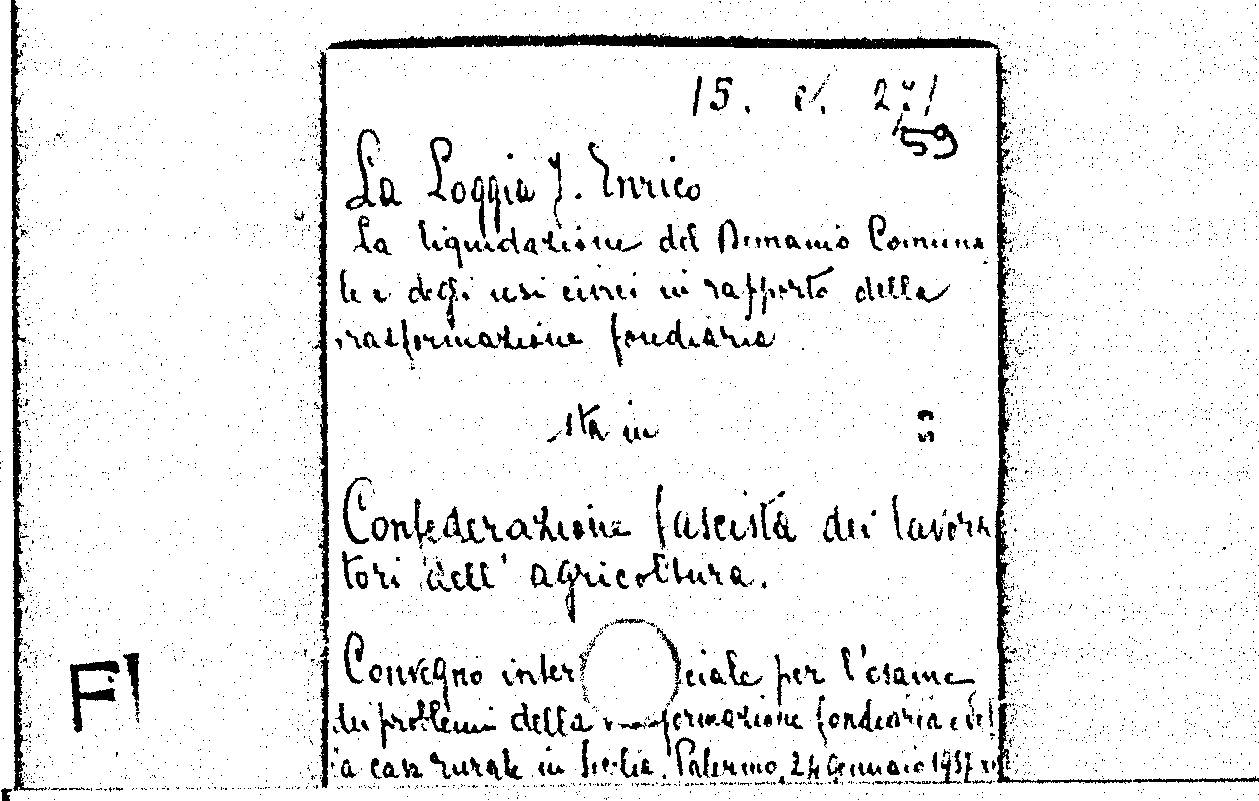 15. C. 271
59
La Loggia J. Enrico
La liquidazione del Demanio Comuna
le e degli usi civici in rapporto della
trasformazione fondiaria
sta in
Confederazione fascista dei lavora
tori dell' agricoltura.
Convegno inter ciale per l'esame
dei problemi della formazione fondiaria e del
la casa rurale in Sicilia. Palermo, 24 Gennaio 1937
F1